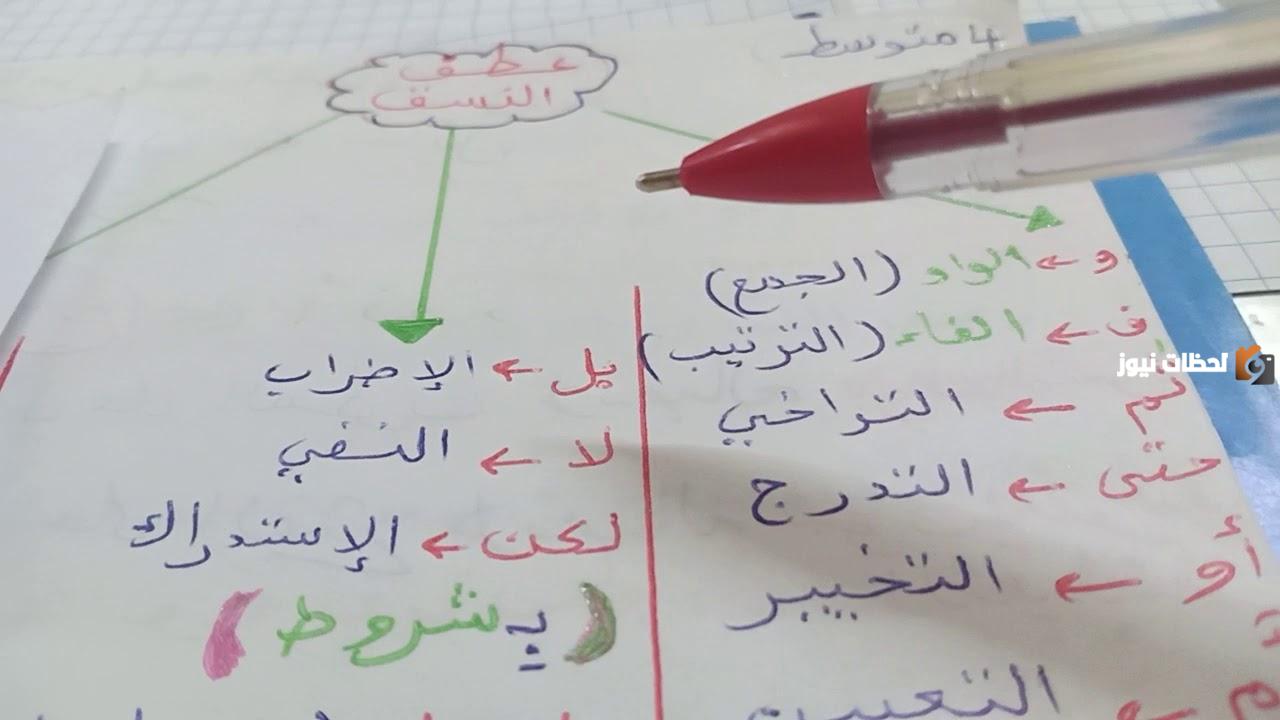 4 متوسط
عطف
النسق
و ← الواو (الجمع)
ف ← الفاء (الترتيب)
ثم ← التراخي
حتى ← التدرج
أو ← التخيير
أم ← التعيين
بل ← الإضراب
لا ← النفي
لكن ← الإستدراك
(بـ شروط)
لحظات نيوز